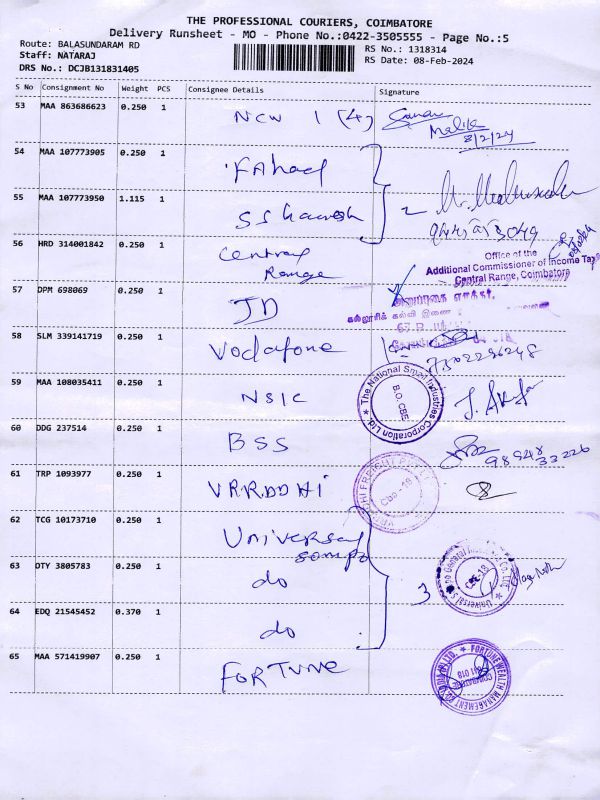 THE PROFESSIONAL COURIERS, COIMBATORE
Delivery Runsheet - MO - Phone No.:0422-3505555 - Page No.:5
Route: BALASUNDARAM RD
RS No.: 1318314
Staff: NATARAJ
RS Date: 08-Feb-2024
DRS No.: DCJB131831405
S No Consignment No Weight PCS Consignee Details Signature
53 MAA 863686623 0.250 1 New 1 (4)
Malik
8/2/24
54 MAA 107773905 0.250 1 Fahad
55 MAA 107773950 1.115 1 SS 2
56 HRD 314001842 0.250 1 Central Range
Office of the
Additional Commissioner of Income Tax
Central Range, Coimbatore
57 DPM 698069 0.250 1 JD
கல்லூரிக் கல்வி இணை
58 SLM 339141719 0.250 1 Vodafone
7502296248
59 MAA 108035411 0.250 1 NSIC
The National Small Industries Corporation Ltd.
B.O. CBE
60 DDG 237514 0.250 1 BSS
61 TRP 1093977 0.250 1 VRRDDHI
Cbe-18
62 TCG 10173710 0.250 1 Universal Sompo
63 DTY 3805783 0.250 1 do 3
Universal Sompo General Insurance Co. Ltd.
CBE-18
64 EDQ 21545452 0.370 1 do
65 MAA 571419907 0.250 1 FORTUNE
FORTUNE WEALTH MANAGEMENT CO
COIMBATORE